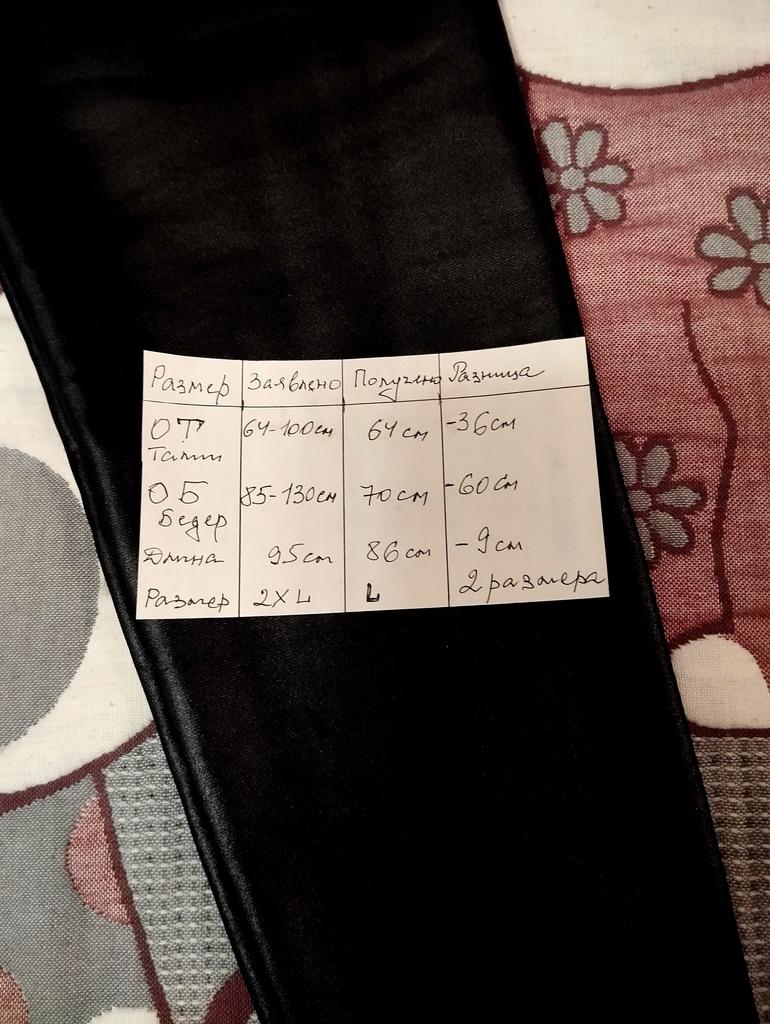 Размер Заявлено Получено Разница
ОТ 64-100см 64см -36см
Талии
ОБ 85-130см 70см -60см
Бедер
Длина 95см 86см -9см
Размер 2XL L 2 размера